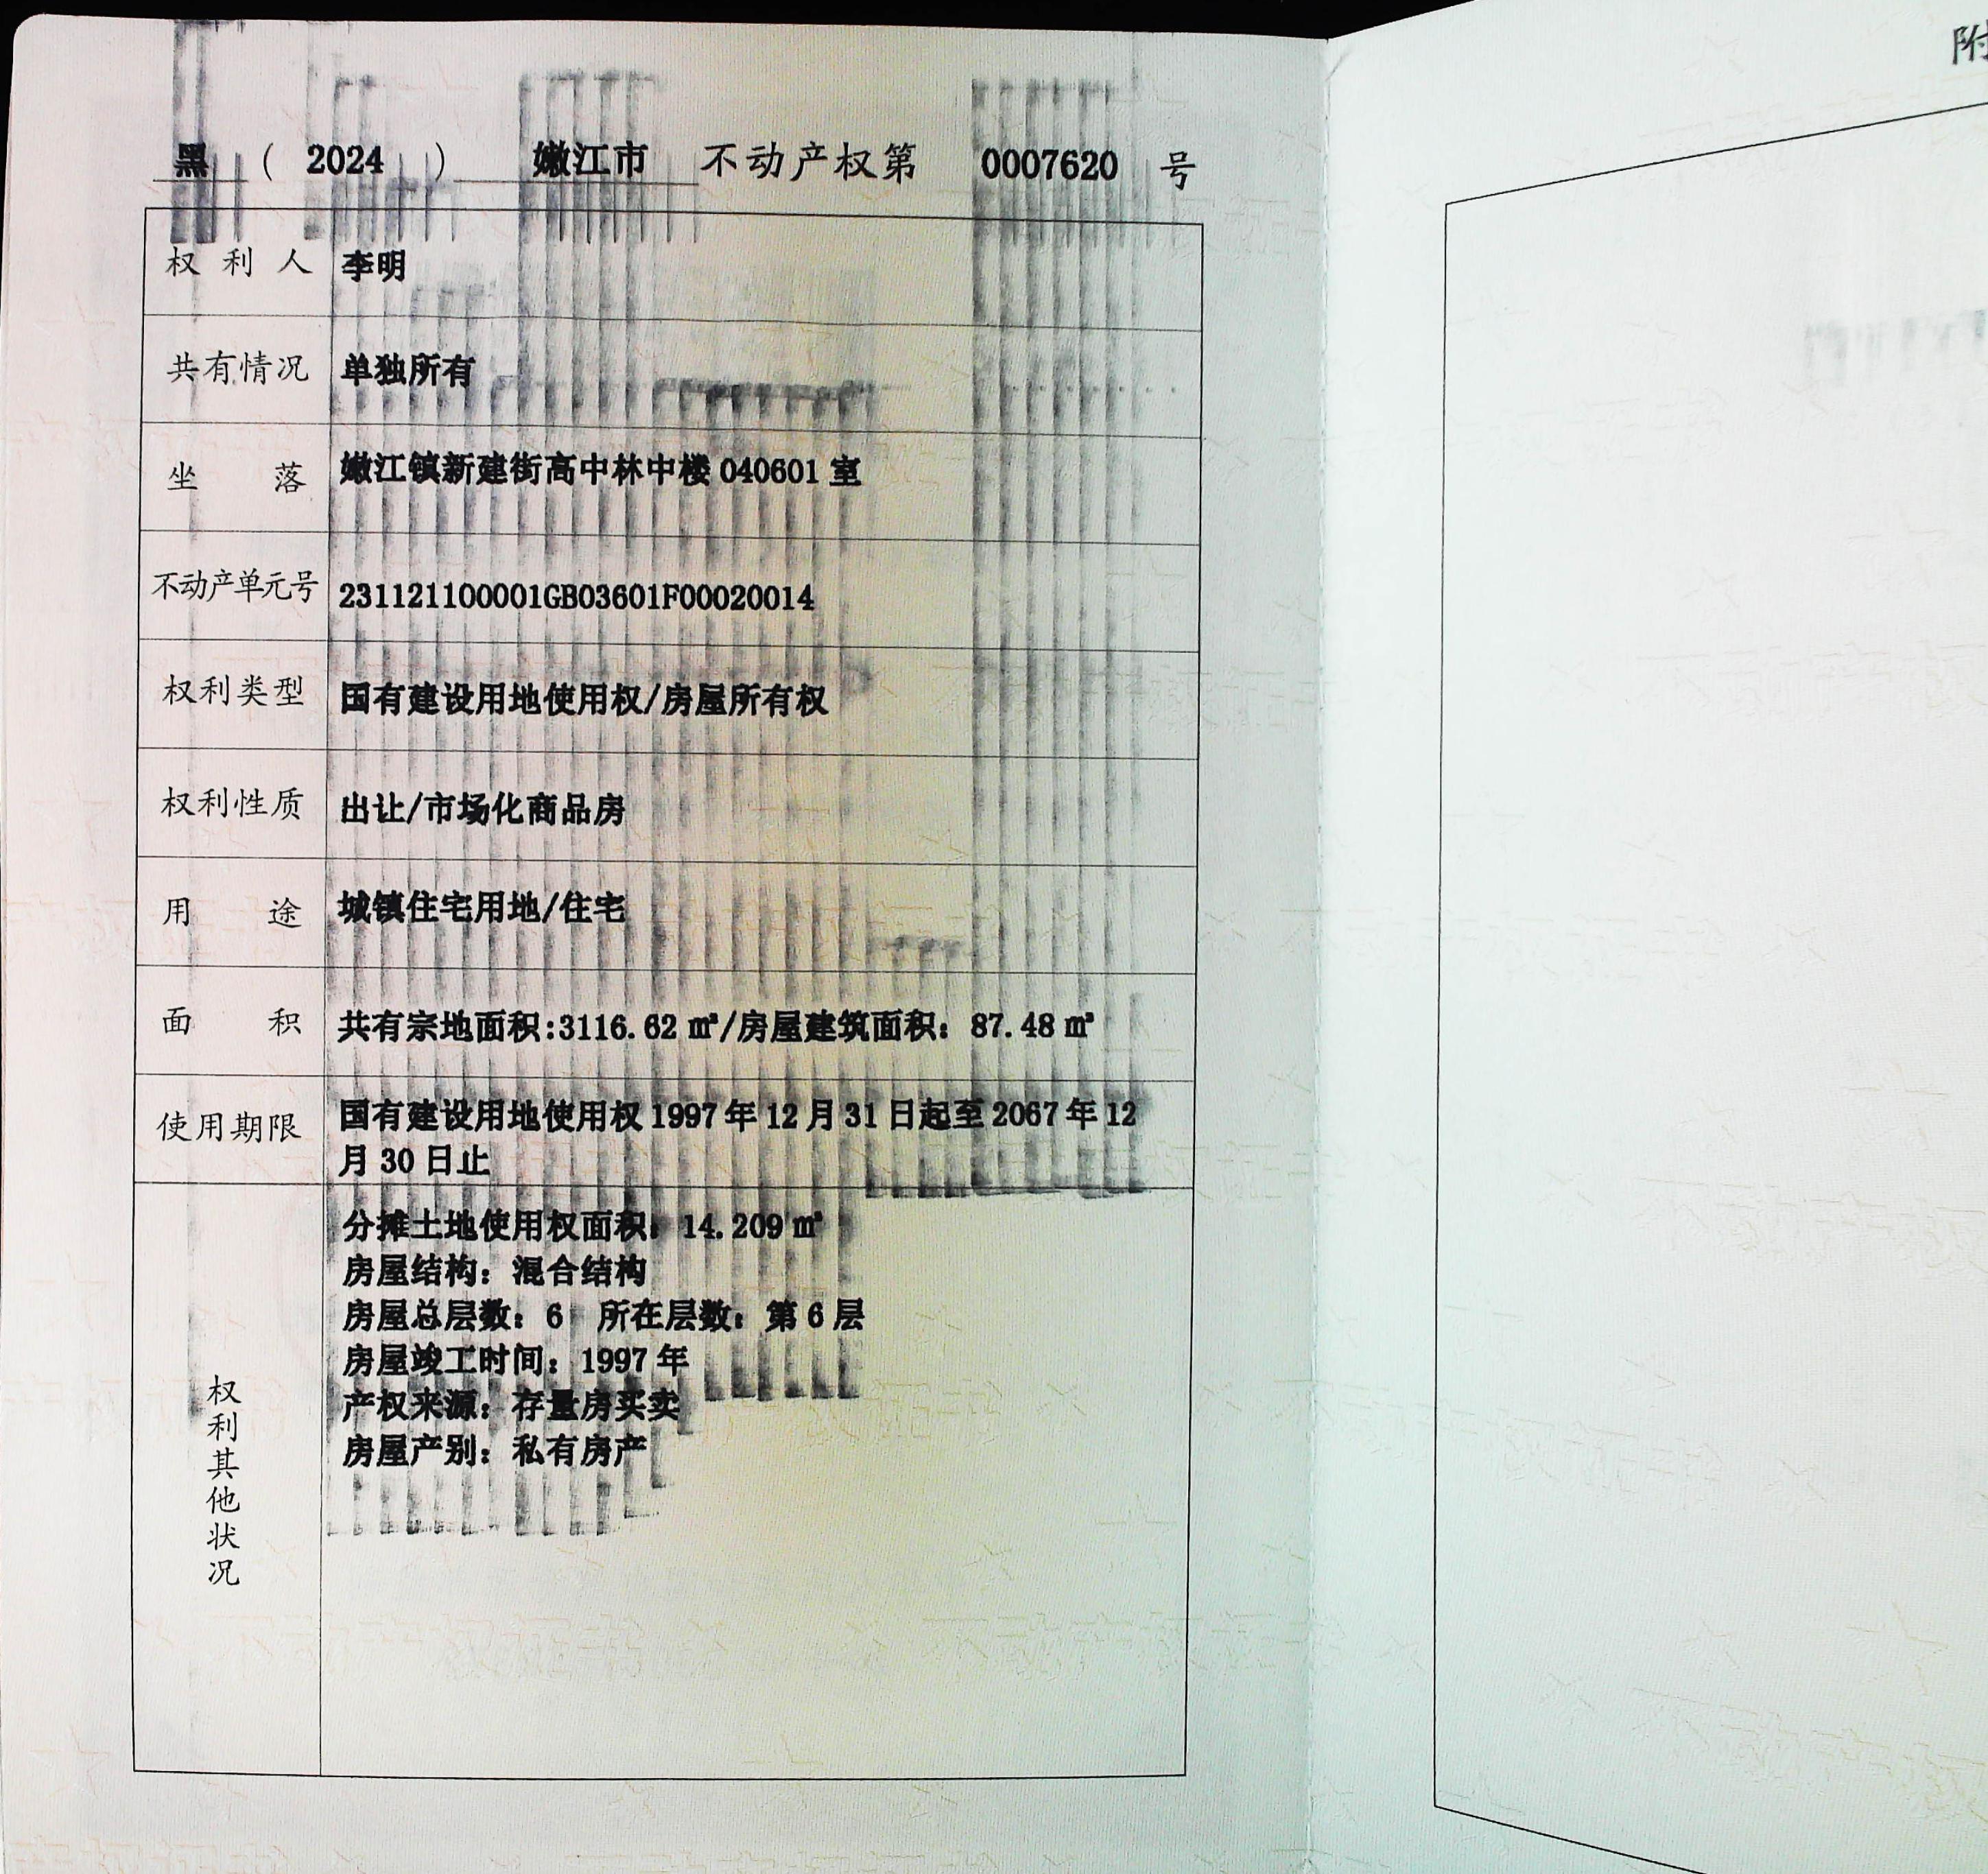 黑 ( 2024 ) 嫩江市 不动产权第 0007620 号
权利人 李明
共有情况 单独所有
坐落 嫩江镇新建街高中林中楼 040601 室
不动产单元号 231121100001GB03601F00020014
权利类型 国有建设用地使用权/房屋所有权
权利性质 出让/市场化商品房
用途 城镇住宅用地/住宅
面积 共有宗地面积:3116.62 ㎡/房屋建筑面积：87.48 ㎡
使用期限 国有建设用地使用权 1997 年 12 月 31 日起至 2067 年 12
月 30 日止
权利其他状况
分摊土地使用权面积：14.209 ㎡
房屋结构：混合结构
房屋总层数：6 所在层数：第 6 层
房屋竣工时间：1997 年
产权来源：存量房买卖
房屋产别：私有房产
附